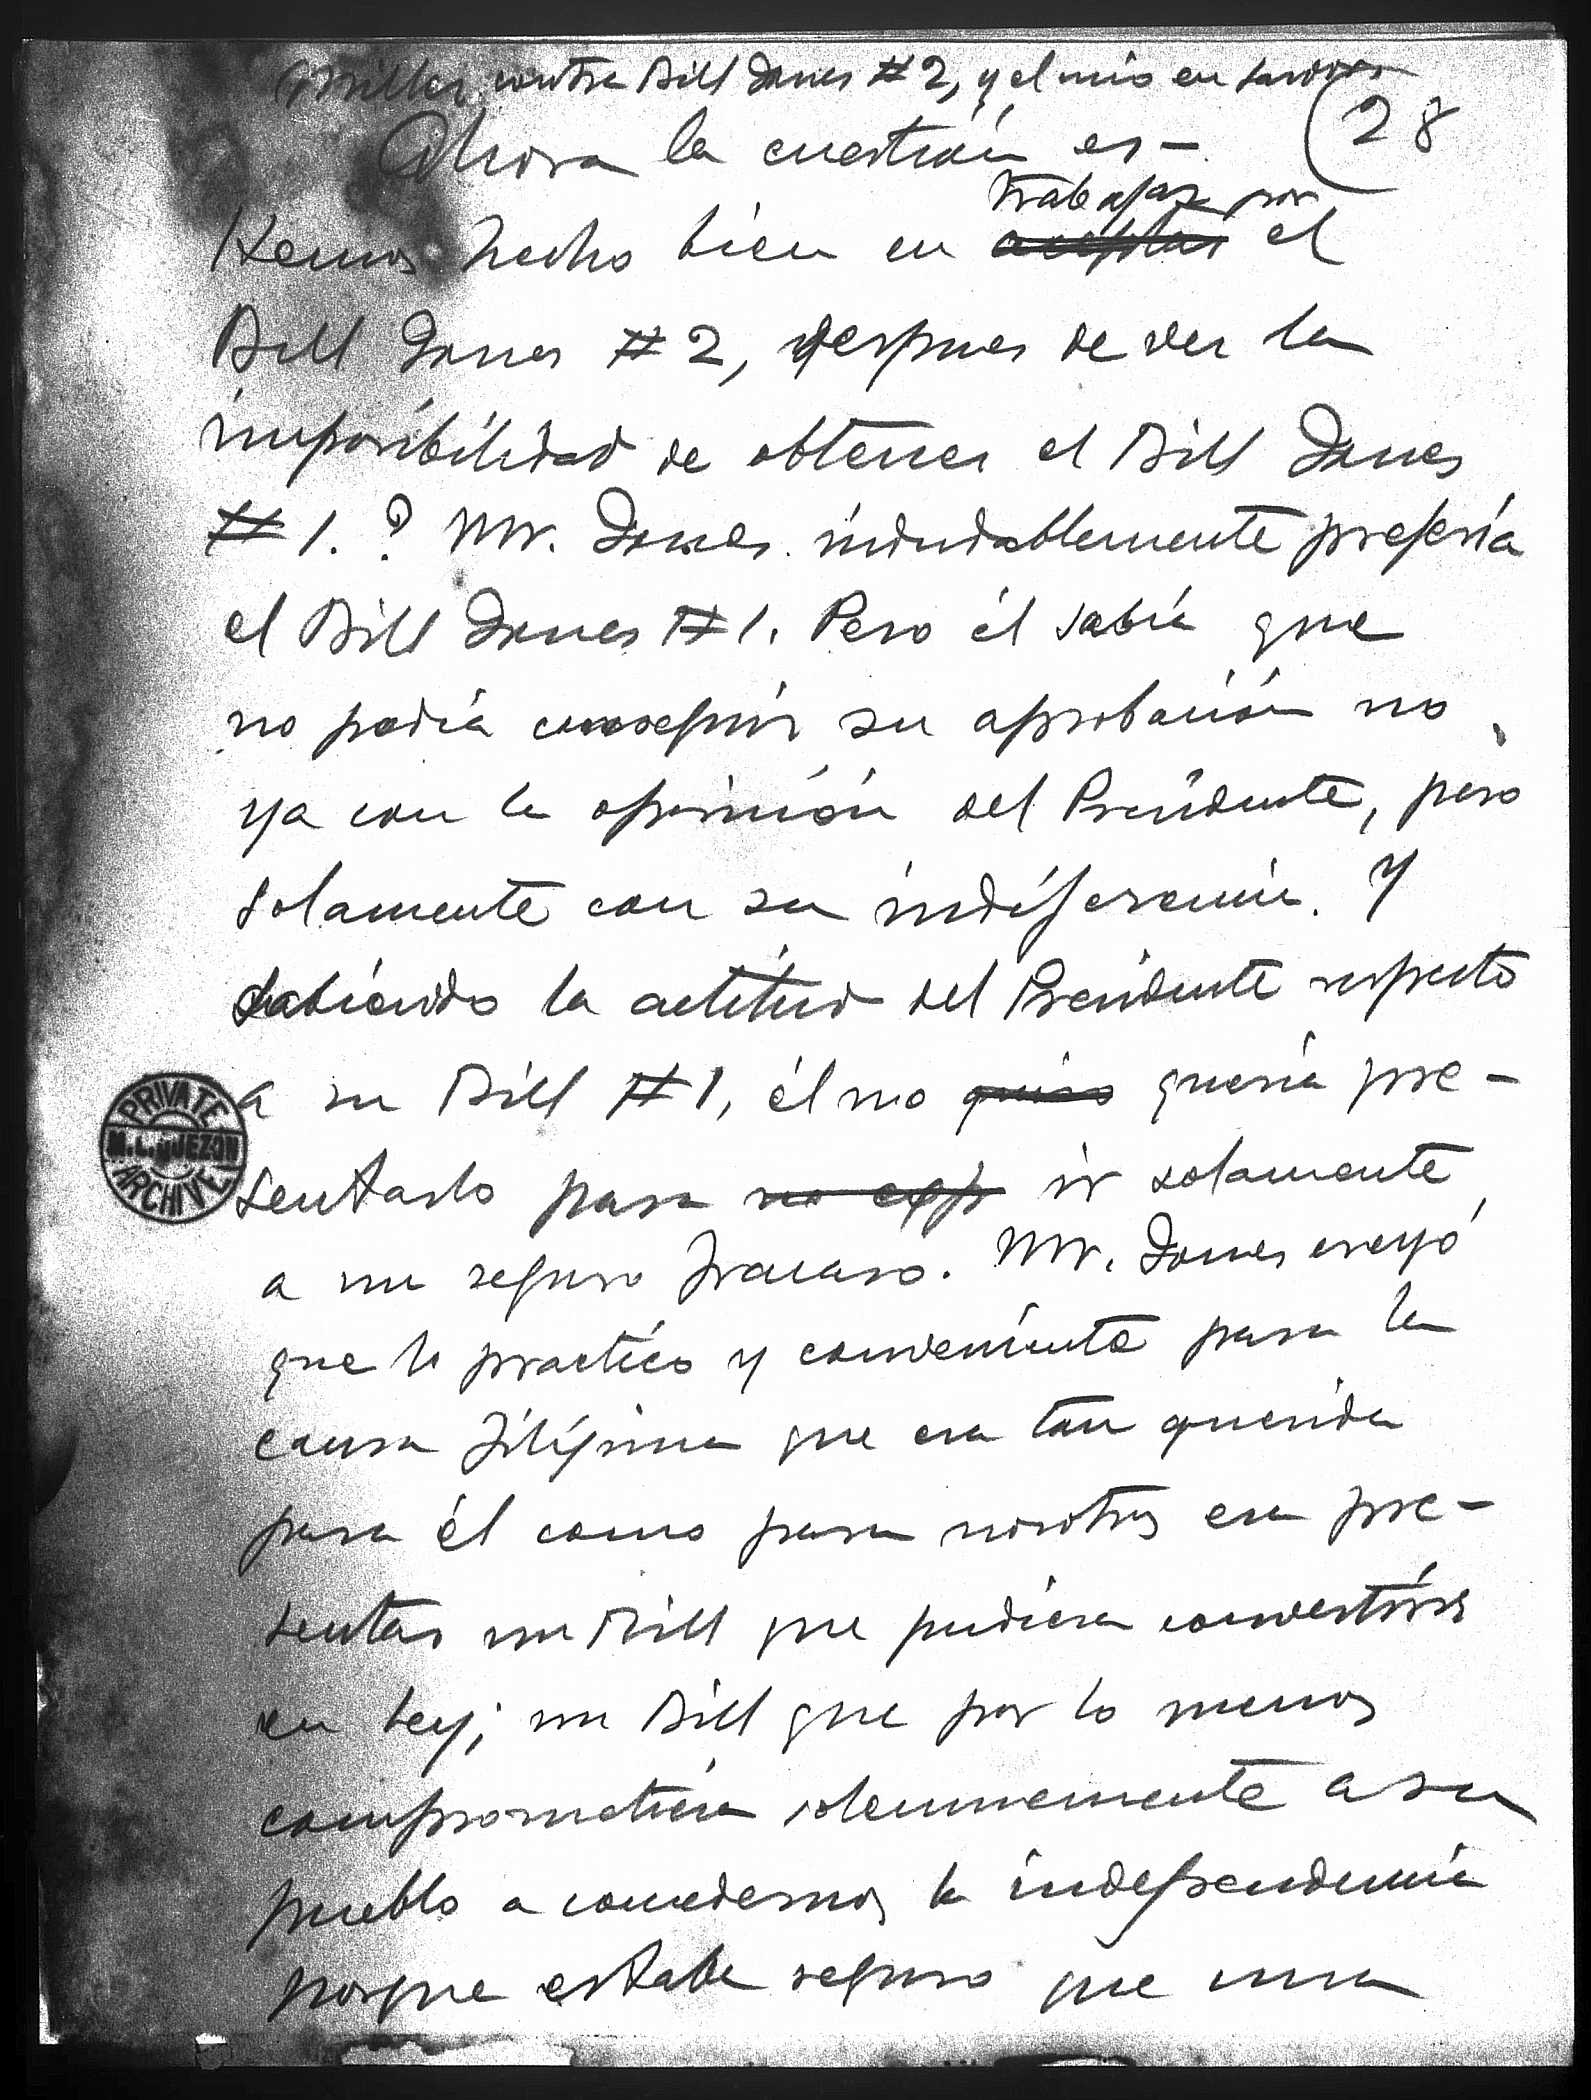 Miller contra Bill Jones #2, y el mio en favor
(28
Ahora la cuestión es-
trabajar por
Hemos hecho bien en aceptar el
Bill Jones #2, despues de ver la
imposibilidad de obtener el Bill Jones
#1.? Mr. Jones indudablemente prefería
el Bill Jones #1. Pero él sabía que
no podía conseguir su aprobación no
ya con la oposición del Presidente, pero
solamente con su indiferencia. Y
sabiendo la actitud del Presidente respecto
a su Bill #1, él no quiso quería pre-
sentarlo para no exp ir solamente
a un seguro fracaso. Mr. Jones creyó
que lo practico y conveniente para la
causa filipina que era tan querida
para él como para nosotros era pre-
sentar un Bill que pudiera convertirse
en ley; un Bill que por lo menos
comprometiera solemnemente a su
pueblo a concedernos la independencia
porque estaba seguro que una
PRIVATE
M.L. QUEZON
ARCHIVE